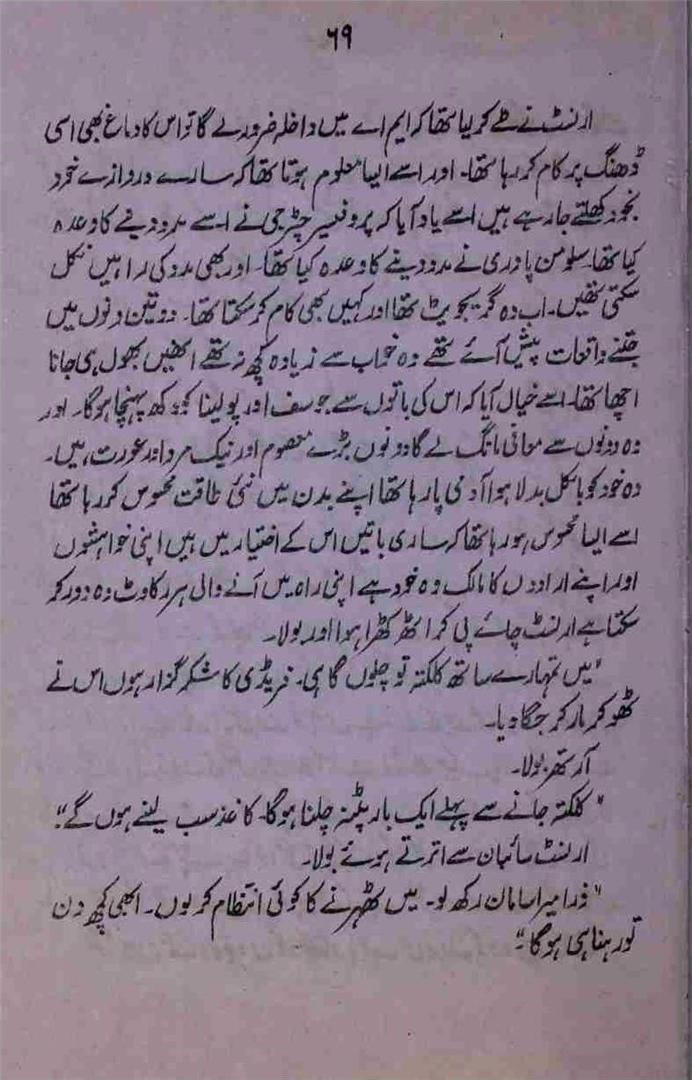 ۶۹
ارنسٹ نے طے کر لیا تھا کہ ایم اے میں داخلہ ضرور لے گا تو اس کا دماغ بھی اسی
ڈھنگ پر کام کر رہا تھا۔ اور اسے ایسا معلوم ہوتا تھا کہ سارے دروازے خود
بخود کھلتے جا رہے ہیں اسے یاد آیا کہ پروفیسر چٹرجی نے اسے مدد دینے کا وعدہ
کیا تھا۔ سلومن پادری نے مدد دینے کا وعدہ کیا تھا۔ اور بھی مدد کی راہیں نکل
سکتی تھیں۔ اب وہ گریجویٹ تھا اور کہیں بھی کام کر سکتا تھا۔ دو تین دنوں میں
جتنے واقعات پیش آئے تھے وہ خواب سے زیادہ کچھ نہ تھے انھیں بھول ہی جانا
اچھا تھا۔ اسے خیال آیا کہ اس کی باتوں سے جوسف اور پولینا کو دکھ پہنچا ہوگا۔ اور
وہ دونوں سے معافی مانگ لے گا دونوں بڑے معصوم اور نیک مرد اور عورت ہیں۔
وہ خود کو بالکل بدلا ہوا آدمی پا رہا تھا اپنے بدن میں نئی طاقت محسوس کر رہا تھا
اسے ایسا محسوس ہو رہا تھا کہ ساری باتیں اس کے اختیار میں ہیں اپنی خواہشوں
اور اپنے ارادوں کا مالک وہ خود ہے اپنی راہ میں آنے والی ہر رکاوٹ وہ دور کر
سکتا ہے ارنسٹ چائے پی کر اٹھ کھڑا ہوا اور بولا۔
"میں تمہارے ساتھ کلکتہ تو چلوں گا ہی۔ فریڈی کا شکر گزار ہوں اس نے
ٹھوکر مار کر جگا دیا۔
آرتھر بولا۔
"کلکتہ جانے سے پہلے ایک بار پٹمنہ چلنا ہوگا۔ کاغذ سب لینے ہوں گے"۔
ارنسٹ سائبان سے اترتے ہوئے بولا۔
"ذرا میرا سامان رکھ لو۔ میں ٹھہرنے کا کوئی انتظام کر لوں۔ ابھی کچھ دن
تو رہنا ہی ہوگا۔"